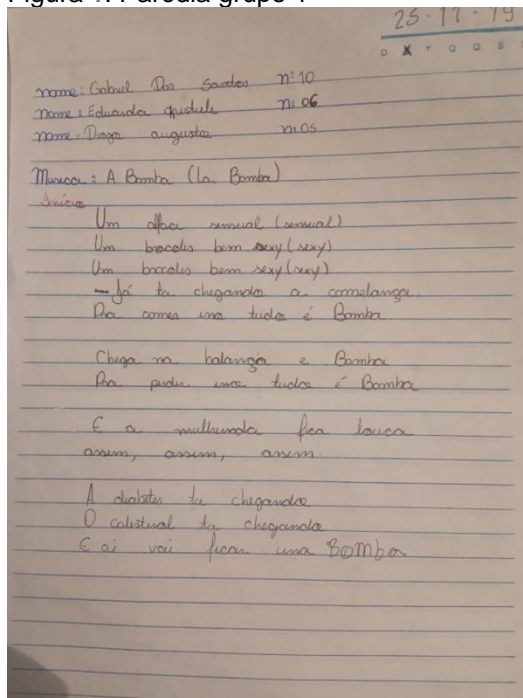 25-11-19
D X T Q Q S
nome: Gabriel Dos Santos n:10
nome: Eduarda n: 06
nome: Diogo augusto n:05
Musica: A Bomba (La Bomba)
Início
Um alface sensual (sensual)
Um brocolis bem sexy (sexy)
Um brocolis bem sexy (sexy)
Já ta chegando a comelança
Pra comer isso tudo é Bomba
Chega na balança e Bomba
Pra perder isso tudo é Bomba
E a mulherada fica louca
assim, assim, assim.
A diabites ta chegando
O colisterol ta chegando
E ai vai ficar uma BOMBa